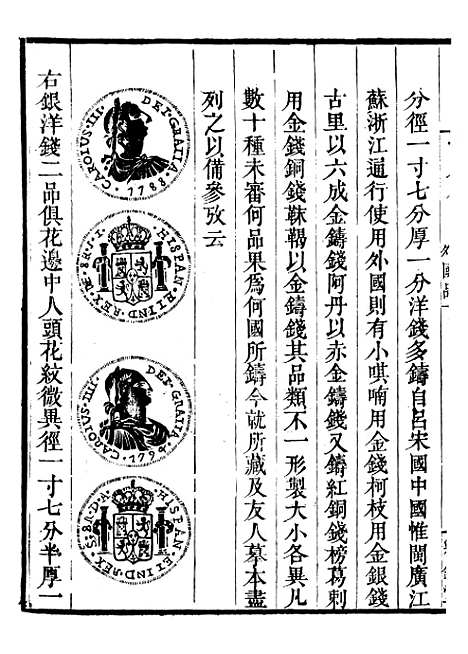 分徑一寸七分厚一分洋錢多鑄自呂宋國中國惟閩廣江
蘇浙江通行使用外國則有小唭喃用金錢柯枝用金銀錢
古里以六成金鑄錢阿丹以赤金鑄錢又鑄紅銅錢榜葛剌
用金錢銅錢靺鞨以金鑄錢其品類不一形製大小各異凡
數十種未審何品果為何國所鑄今就所藏及友人摹本盡
列之以備參攷云
CAROIUS·III· DEI·GRATIA ·1788·
HISPAN·ET IND·REX
CAROIUS·IIII· DEI·GRATIA ·1794·
HISPAN·ET IND·REX·S·8R·D·A·
右銀洋錢二品俱花邊中人頭花紋微異徑一寸七分半厚一